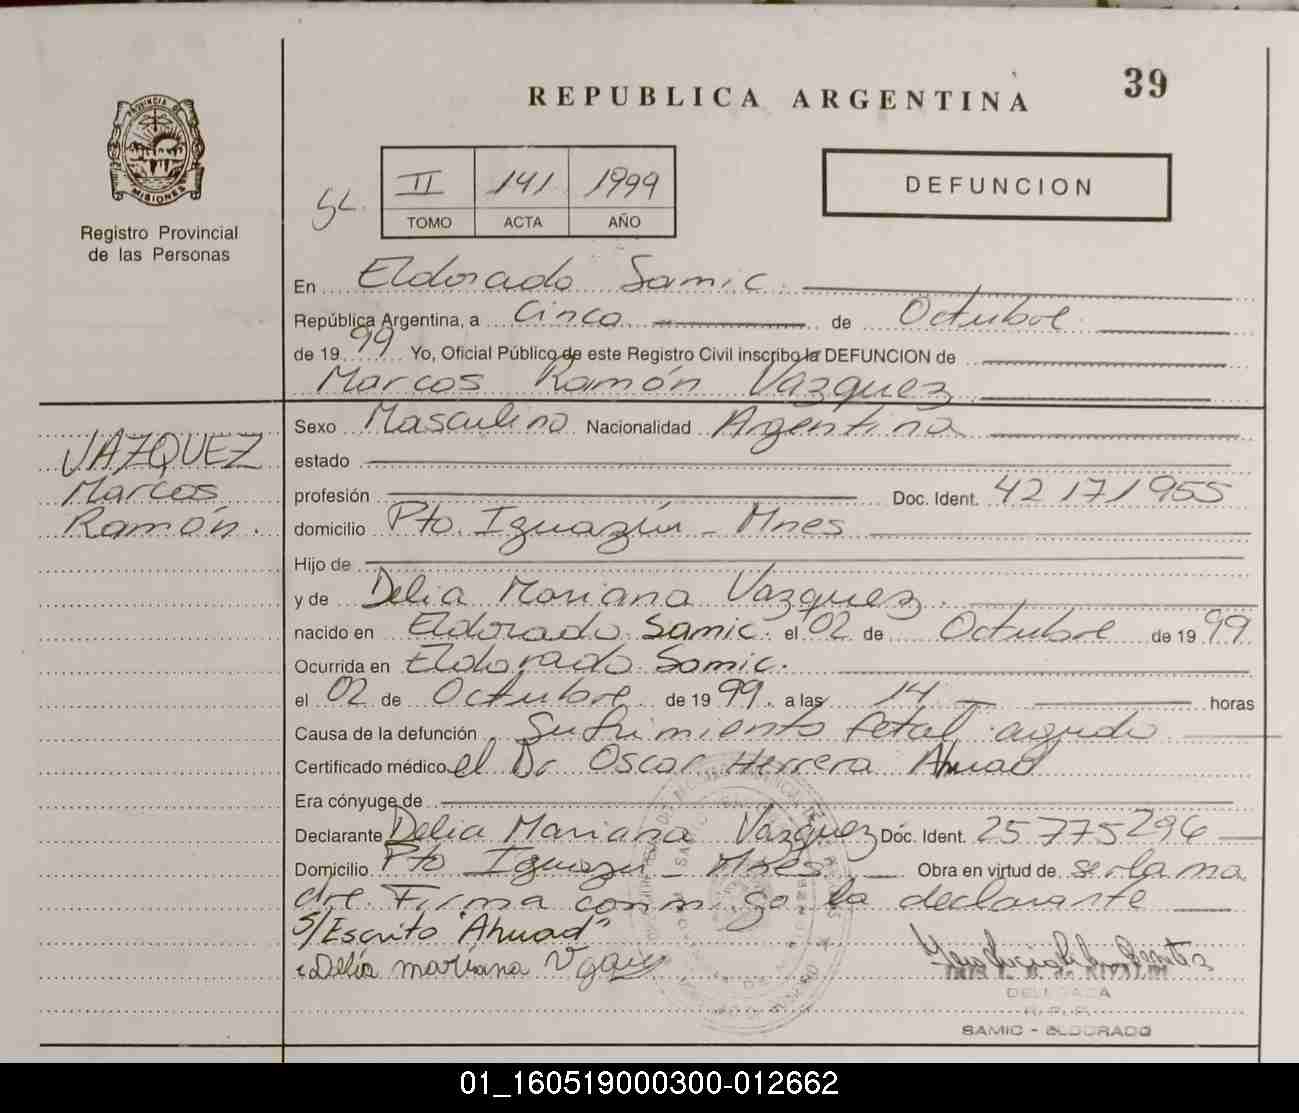 39
REPUBLICA ARGENTINA
PROVINCIA DE
MISIONES
Registro Provincial
de las Personas
II 141 1999
TOMO ACTA AÑO
DEFUNCION
En Eldorado Samic.
República Argentina, a Cinco de Octubre
de 19 99 Yo, Oficial Público de este Registro Civil inscribo la DEFUNCION de
Marcos Ramón Vazquez
VAZQUEZ
Marcos
Ramón.
Sexo Masculino Nacionalidad Argentina
estado
profesión Doc. Ident. 42171955
domicilio Pto. Iguazú - Mnes
Hijo de
y de Delia Mariana Vazquez.
nacido en Eldorado Samic. el 02 de Octubre de 19 99
Ocurrida en Eldorado Samic.
el 02 de Octubre de 19 99. a las 14 horas
Causa de la defunción Sufrimiento fetal agudo
Certificado médico el Dr Oscar Herrera Ahuad
Era cónyuge de
Declarante Delia Mariana Vazquez Doc. Ident. 25775296
Domicilio Pto Iguazu - Mnes. Obra en virtud de ser la ma
dre. Firma conmigo la declarante
S/Escrito "Ahuad"
Delia mariana
DELEGADA
R.P.P.
SAMIC - ELDORADO
01_160519000300-012662